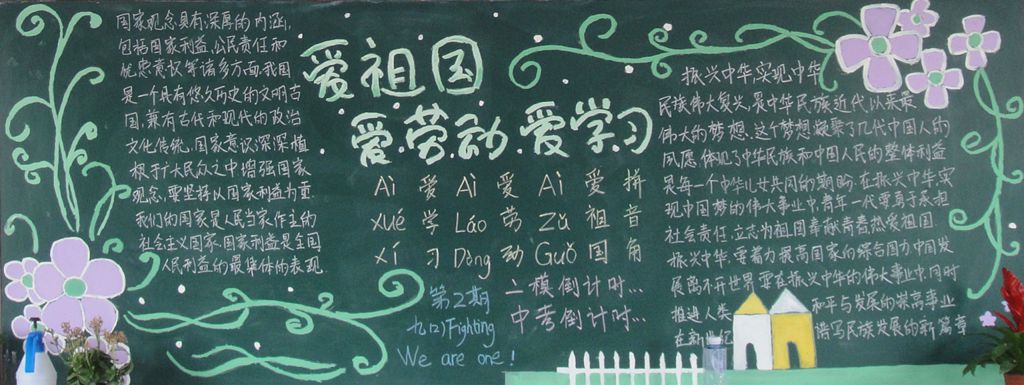 国家观念具有深厚的内涵,
包括国家利益、公民责任和
优患意权等诸多方面,我国
是一个具有悠久历史的文明古
国,兼有古代和现代的政治
文化传统,国家意识深深植
根于广大民众之中增强国家
观念,要坚持以国家利益为重
我们的国家是人民当家作主的
社会主义国家,国家利益是全国
人民利益的最集体的表现.
爱祖国
爱·劳动·爱学习
Ai 爱 Ai 爱 Ai 爱 拼
xué 学 Láo 劳 Zǔ 祖 音
xí 习 Dòng 动 Guó 国 角
第2期
九(2)Fighting
We are one!
二模倒计时...
中考倒计时...
振兴中华实现中华
民族伟大复兴,是中华民族近代以来最
伟大的梦想.这个梦想凝聚了几代中国人的
夙愿,体现了中华民族和中国人民的整体利益
是每一个中华儿女共同的期盼.在振兴中华实
现中国梦的伟大事业中,青年一代要勇于承担
社会责任,立志为祖国奉献青春热爱祖国
振兴中华,要着力提高国家的综合国力中国发
展离不开世界,要在振兴中华的伟大事业中,同时
推进人类 和平与发展的崇高事业
在新世纪 谱写民族发展的新篇章